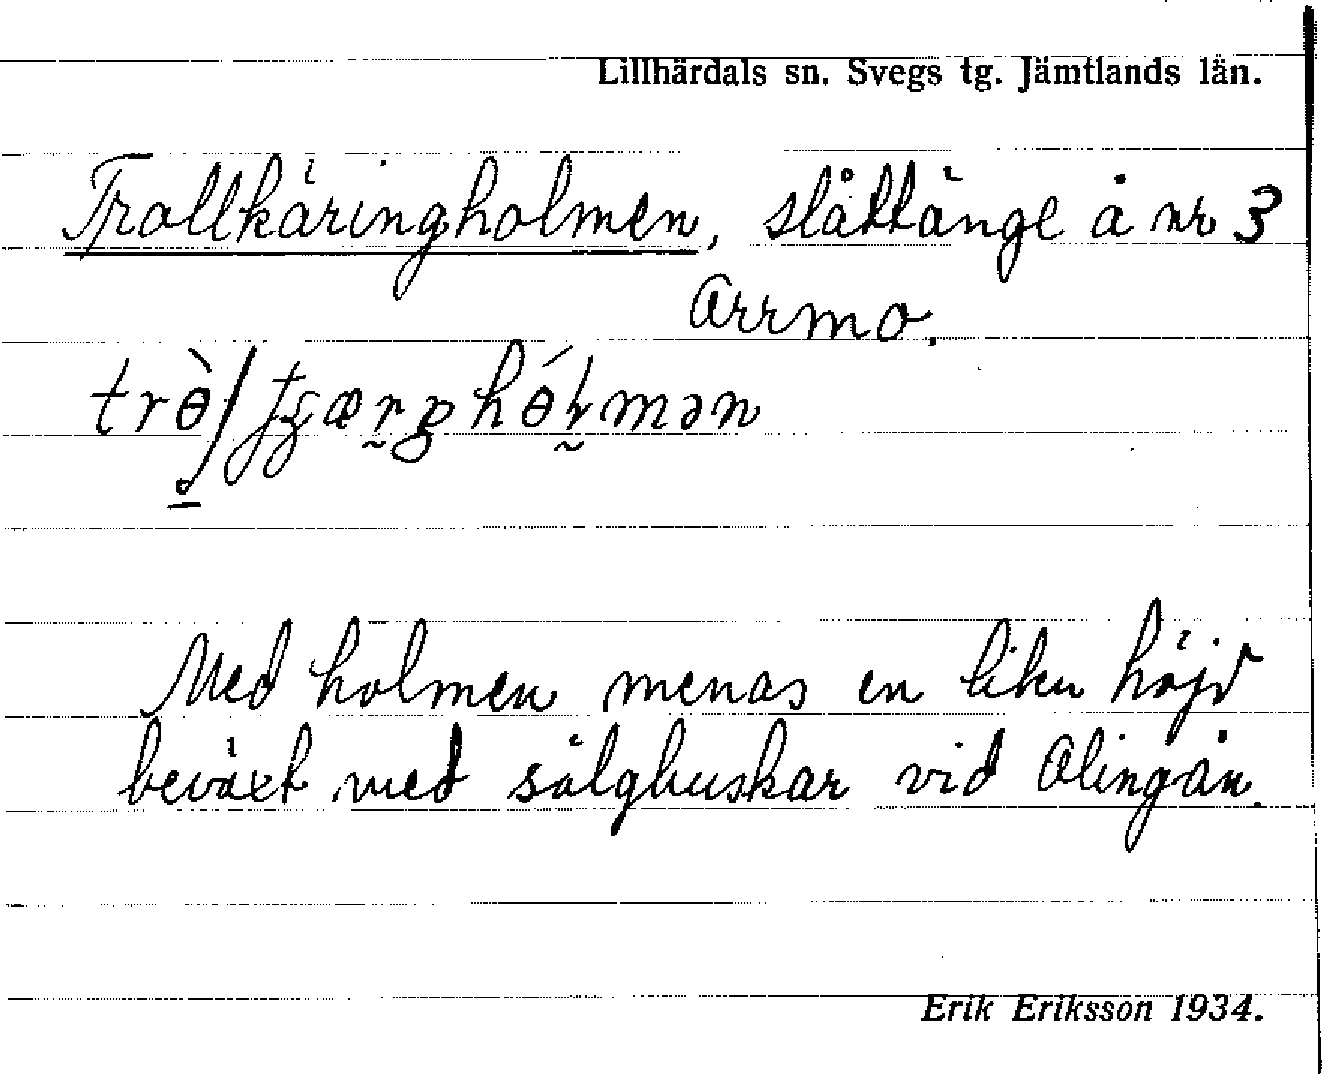 Lillhärdals sn. Svegs tg. Jämtlands län.
Trollkäringholmen, slåttänge å nr 3
Arrmo.
Med holmen menas en liten höjd
beväxt med sälgbuskar vid Olingån.
Erik Eriksson 1934.